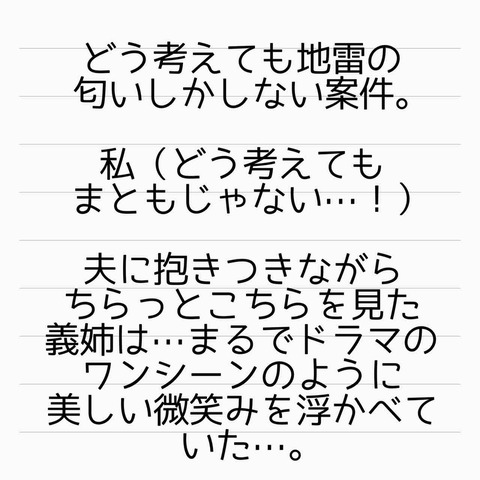 どう考えても地雷の
匂いしかしない案件。
私（どう考えても
まともじゃない…！）
夫に抱きつきながら
ちらっとこちらを見た
義姉は…まるでドラマの
ワンシーンのように
美しい微笑みを浮かべて
いた…。